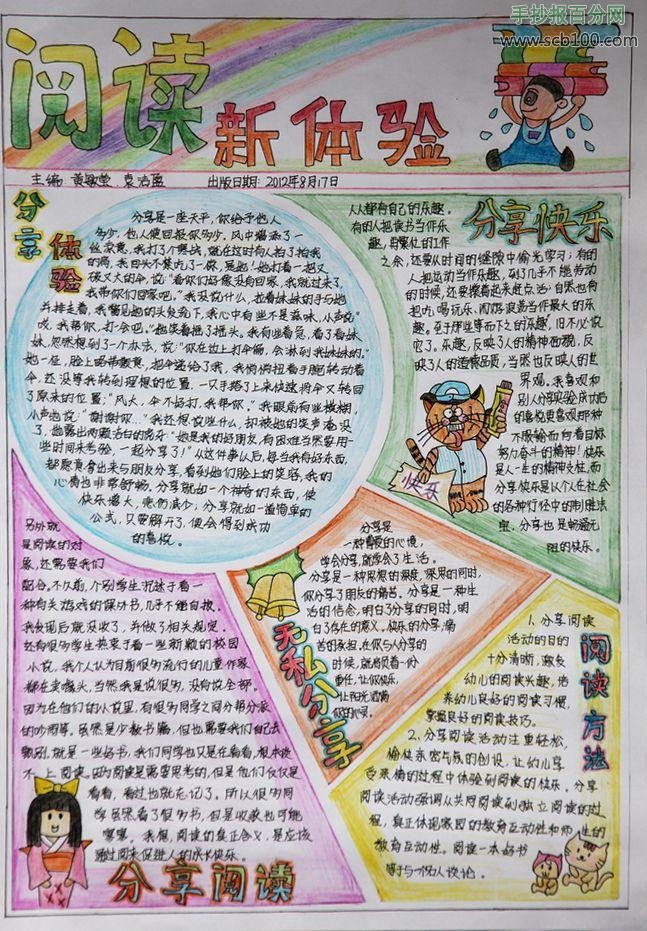 手抄报百分网
www.scb100.com
阅读
新体验
主编: 黄敏莹 袁洁盈 出版日期: 2012年8月17日
分享体验
分享是一座天平,你给予他人
多少,他人便回报你多少。风中增添了一
丝凉意,我打了个寒战,就在这时有人拍了拍我
的肩,我回头不禁吃了一惊,是她!她打着一把又
破又大的伞,说:“看你们好像没有回家,我就过来了,
我带你们回家吧。”我没说什么,拉着妹妹的手与她
并排走着,我瞥见她的头发光下,我心中有些不是滋味,小声说:“
哎,我帮你,打一会吧。”她笑着摇了摇头。我有些着急,看了看妹
妹,忽然想到了一个办法,说:“你在边上打伞偏,会淋到我妹妹的。”
她一怔,脸上略带歉意,把伞递给了我,我悄悄扭着手腕转动着
伞,还没等我转到理想的位置,一只手搭了上来快速将伞又转回
了原来的位置:“风大,伞不好打,我帮你。”我眼前有些模糊,
小声地说:“谢谢你…”我还想说些什么,却被她的笑声淹没
了,她露出两颗洁白的虎牙:“她是我的好朋友,有困难当然要用一
些时间来考验,一起分享了!”从这件事以后,每当我有好东西,
都愿意拿出来与朋友分享,看到她们脸上的笑容,我的
心情也非常舒畅。分享就如一个神奇的东西,使
快乐增大,悲伤减少;分享就如一道简单的
公式,只要解开了,便会得到成功
的喜悦。
分享快乐
人人都有自己的乐趣。
有的人把读书当作乐
趣,再繁忙的工作
之余,还要从时间的缝隙中偷光学习;有的
人把运动当作乐趣,到了几乎不能劳动
的时候,还要撑着起来赶点活;自然也有
把吃喝玩乐、闲游浪荡当作最大的乐
趣。至于那些等而下之的乐趣,旧不必说
它了。乐趣,反映了人的精神面貌,反
映了人的道德品质,当然也反映人的世
界观。我喜欢和
别人分享实验成功后
的喜悦更喜欢那种
不服输而向着目标
努力奋斗的精神!快乐
是人一生的精神支柱,而
分享快乐是从个人在社会
的各种灯径中的制胜法
宝,分享也是畅通无
阻的快乐。
快乐
另外就
是阅读的对
象,还需要我们
配合。不久前,个别学生沉迷于看一
种有关游戏的课外书,几乎不能自拔。
我发现后就没收了,并做了相关规定。
还有很多学生热衷于看一些新颖的校园
小说,我个人认为目前很多流行的儿童作家
都在卖噱头,当然我是说很多,没有说全部。
因为在他们的小说里,有很多同学之间分帮分派
的吵闹等,虽然是少数书籍,但也需要我们自己去
甄别。就是一些好书,我们同学也只是在看看,根本谈
不上阅读。因为阅读是需要思考的,但是他们仅仅是
看看,看过也就忘记了。所以很多同
学虽然看了很多书,但是收获也可能
寥寥。我想,阅读的真正含义,是应该
通过阅来促进人的成长快乐。
分享阅读
无私分享
分享是
一种博爱的心境,
学会分享,就学会了生活。
分享是一种思想的深度,深思的同时,
你分享了朋友的痛苦。分享是一种生
活的信念,明白了分享的同时,明
白了存在的意义,快乐的分享,痛
苦的分担,在你与人分享的
时候,就肩负着一份
责任,让你快乐,
让阳光洒满
你的心灵。
阅读方法
1、分享阅读
活动的目的
十分清晰,激发
幼儿的阅读兴趣,培
养幼儿良好的阅读习惯,
掌握良好的阅读技巧。
2、分享阅读活动注重轻松,
愉快亲密与感的创设,让幼儿享
受亲情的过程中体验到阅读的快乐。分享
阅读活动强调从共同阅读到独立阅读的过
程,真正体现家园的教育互动性和师生的
教育互动性。阅读一本好书
等于与一个知人谈论。